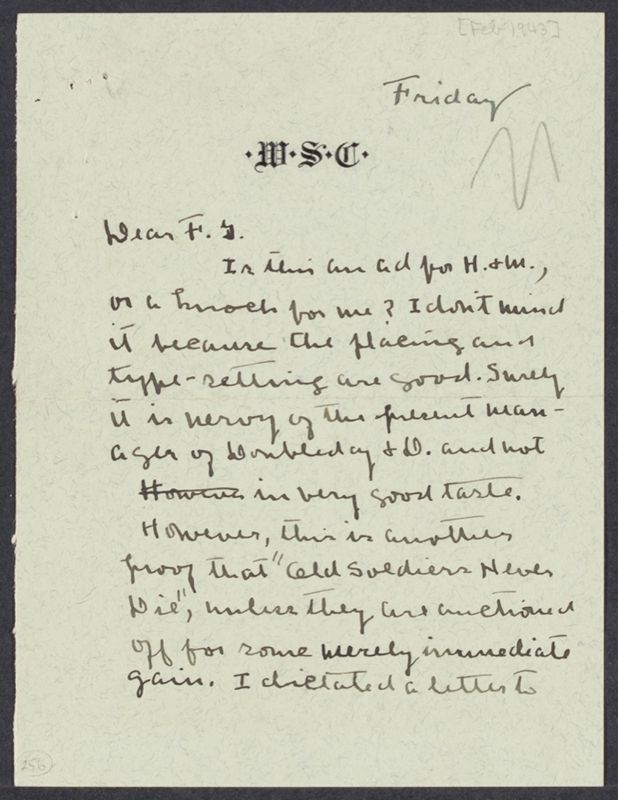 [Feb 1943]
Friday
·W·S·C·
Dear F. G.
Is this an ad for H. & M.,
or a knock for me? I don't mind
it because the placing and
type-setting are good. Surely
it is nervy of the present man-
ager of Doubleday & D. and not
However in very good taste.
However, this is another
proof that "Old Soldiers Never
Die", unless they are auctioned
off for some merely immediate
gain. I dictated a letter to
256